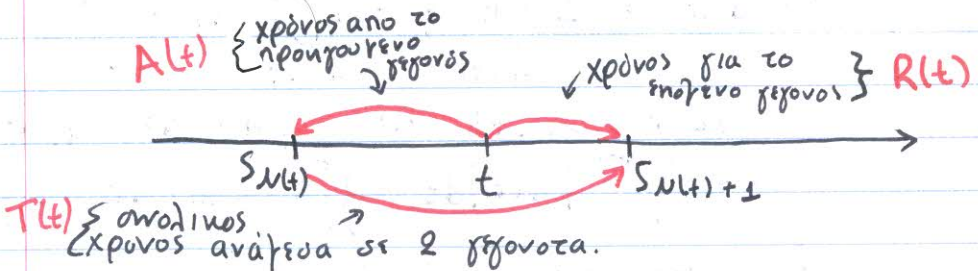 A(t) { χρόνος απο το
προηγουμενο
γεγονός
χρόνος για το
επομενο γεγονος } R(t)
S_N(t) t S_N(t)+1
T(t) { συνολικος
χρονος ανάμεσα σε 2 γεγονοτα.